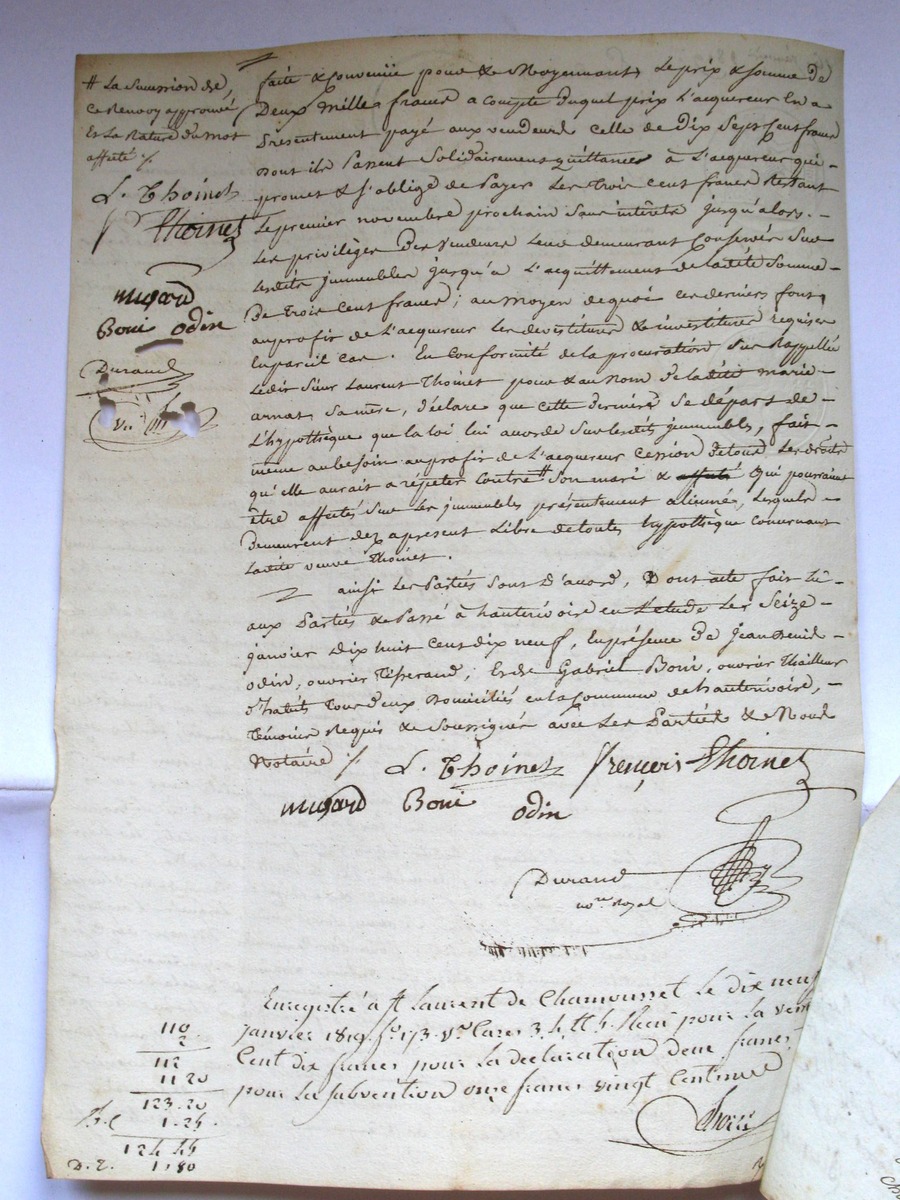 # La Sucession de,
Ce Renvoy approuvé
et La Rature du mot
affecté ./.
L. Thoinet
Thoinet
mugard
Boni odin
Durand
faite & Convenüe pour & Moyennant Le prix & Somme de
Deux Mille francs a compte duquel prix L'acquereur En a
Presentement payé aux vendeurs celle de Dix Sept Cent francs
dont ils Passent Solidairement quittance à L'acquereur qui
promet & s'oblige de Payer Les Trois Cent francs Restant
Le premier novembre prochain Sans intérêts jusqu'alors. -
Les privilèges Des Vendeurs Leur demeurant Conservés Sur
Lesdits immeubles jusqu'à L'acquittement de ladite Somme
De Trois Cent francs; au Moyen de quoi ces derniers font,
au profit de L'acquereur Les devestitures & investitures requises
En pareil Cas. En Conformité de la procuration Sus Rappellée
Ledit Sieur Laurent Thoinet pour & au Nom de ladite marie
arnas Sa mère, déclare que cette derniére Se départ de
L'hypothèque que la loi lui accorde Sur lesdits jmmeubles, fait
même au besoin au profit de L'acquereur Cession de tous Les Droits
qu'elle aurait a répeter Contre # Son mari & affecté Qui pourraient
être affectés Sur Les jmmeubles présentement aliennés, Lesquels -
Demeurent dez apresent Libre de toutes hypothèque Concernant
Ladite veuve Thoinet.
ainsi Les Parties Sont D'accord, Dont acte fait Lû -
aux Parties & Passé à hauterivoire en L'étude Les Seize -
janvier Dix huit Cent Dix neuf, En présence De Jean
odin, ouvrier Tisserand; Et de Gabriel Boni, ouvrier Thailleur
d'habits Tous deux Domiciliés en la Commune de hauterivoire, -
Témoins Requis & Soussignés avec Les Parties & Nous
Notaire ./.
L. Thoinet françois Thoinet
mugard Boni odin
Durand
no.re Royal
Enregistré à St Laurent de Chamousset le dix neuf
janvier 1819 f.o 173 v.o Cases 3 4 et 5. Reçu pour la vente
Cent dix francs pour la déclaration deux francs
pour la Subvention onze francs vingt Centimes
110
2
112
11 20
123.20
1.25
124 45
D. E. 1.80